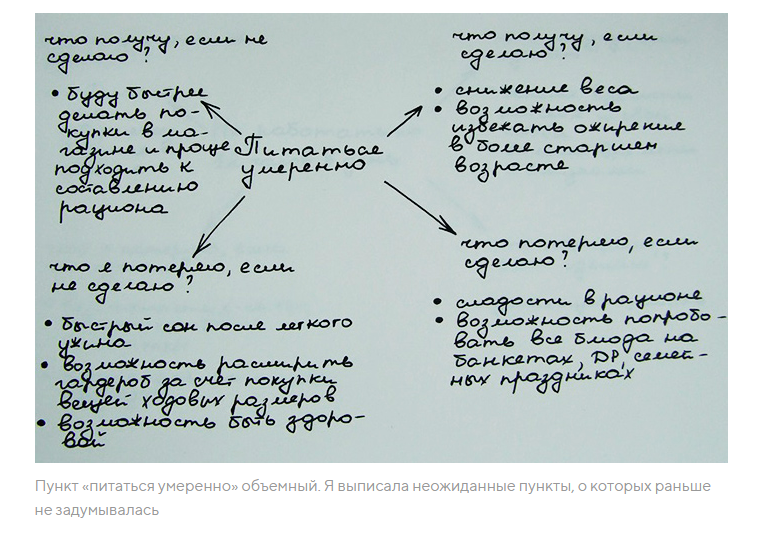 что получу, если не
сделаю?
• буду быстрее
делать по-
купки в ма-
газине и проще
подходить к
составлению
рациона
что получу, если
сделаю?
• снижение веса
• возможность
избежать ожирение
в более старшем
возрасте
Питаться
умеренно
что я потеряю, если
не сделаю?
• быстрый сон после легкого
ужина
• возможность расширить
гардероб за счёт покупки
вещей ходовых размеров
• возможность быть здоро-
вой
что потеряю, если
сделаю?
• сладости в рационе
• возможность попробо-
вать все блюда на
банкетах, DP, семей-
ных праздниках
Пункт «питаться умеренно» объемный. Я выписала неожиданные пункты, о которых раньше
не задумывалась